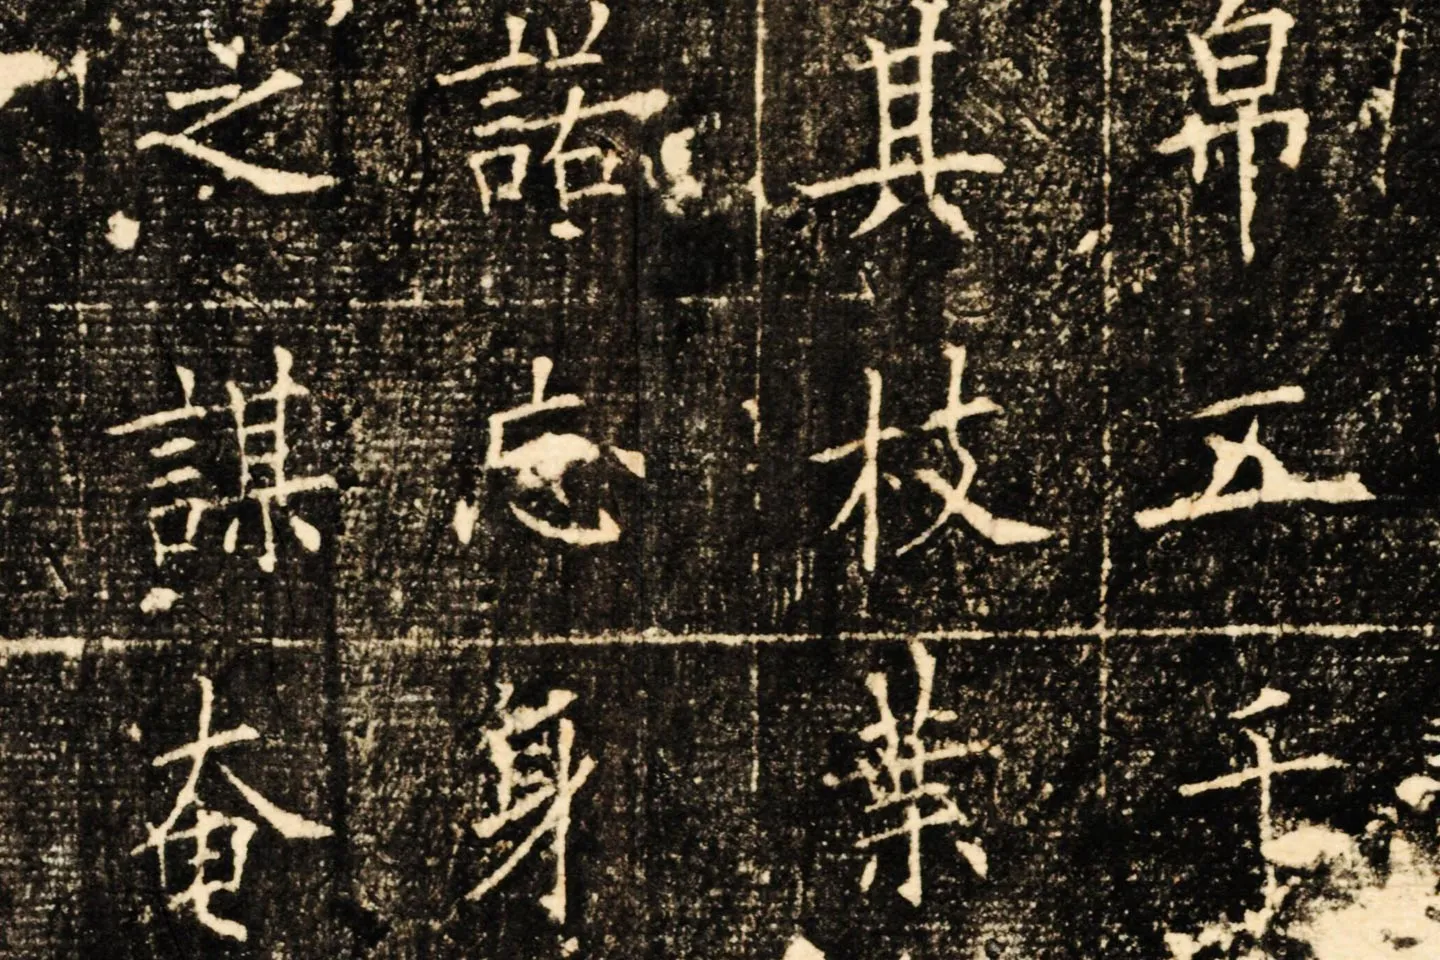 帛五千
其枝葉
諾忘身
之謀奄